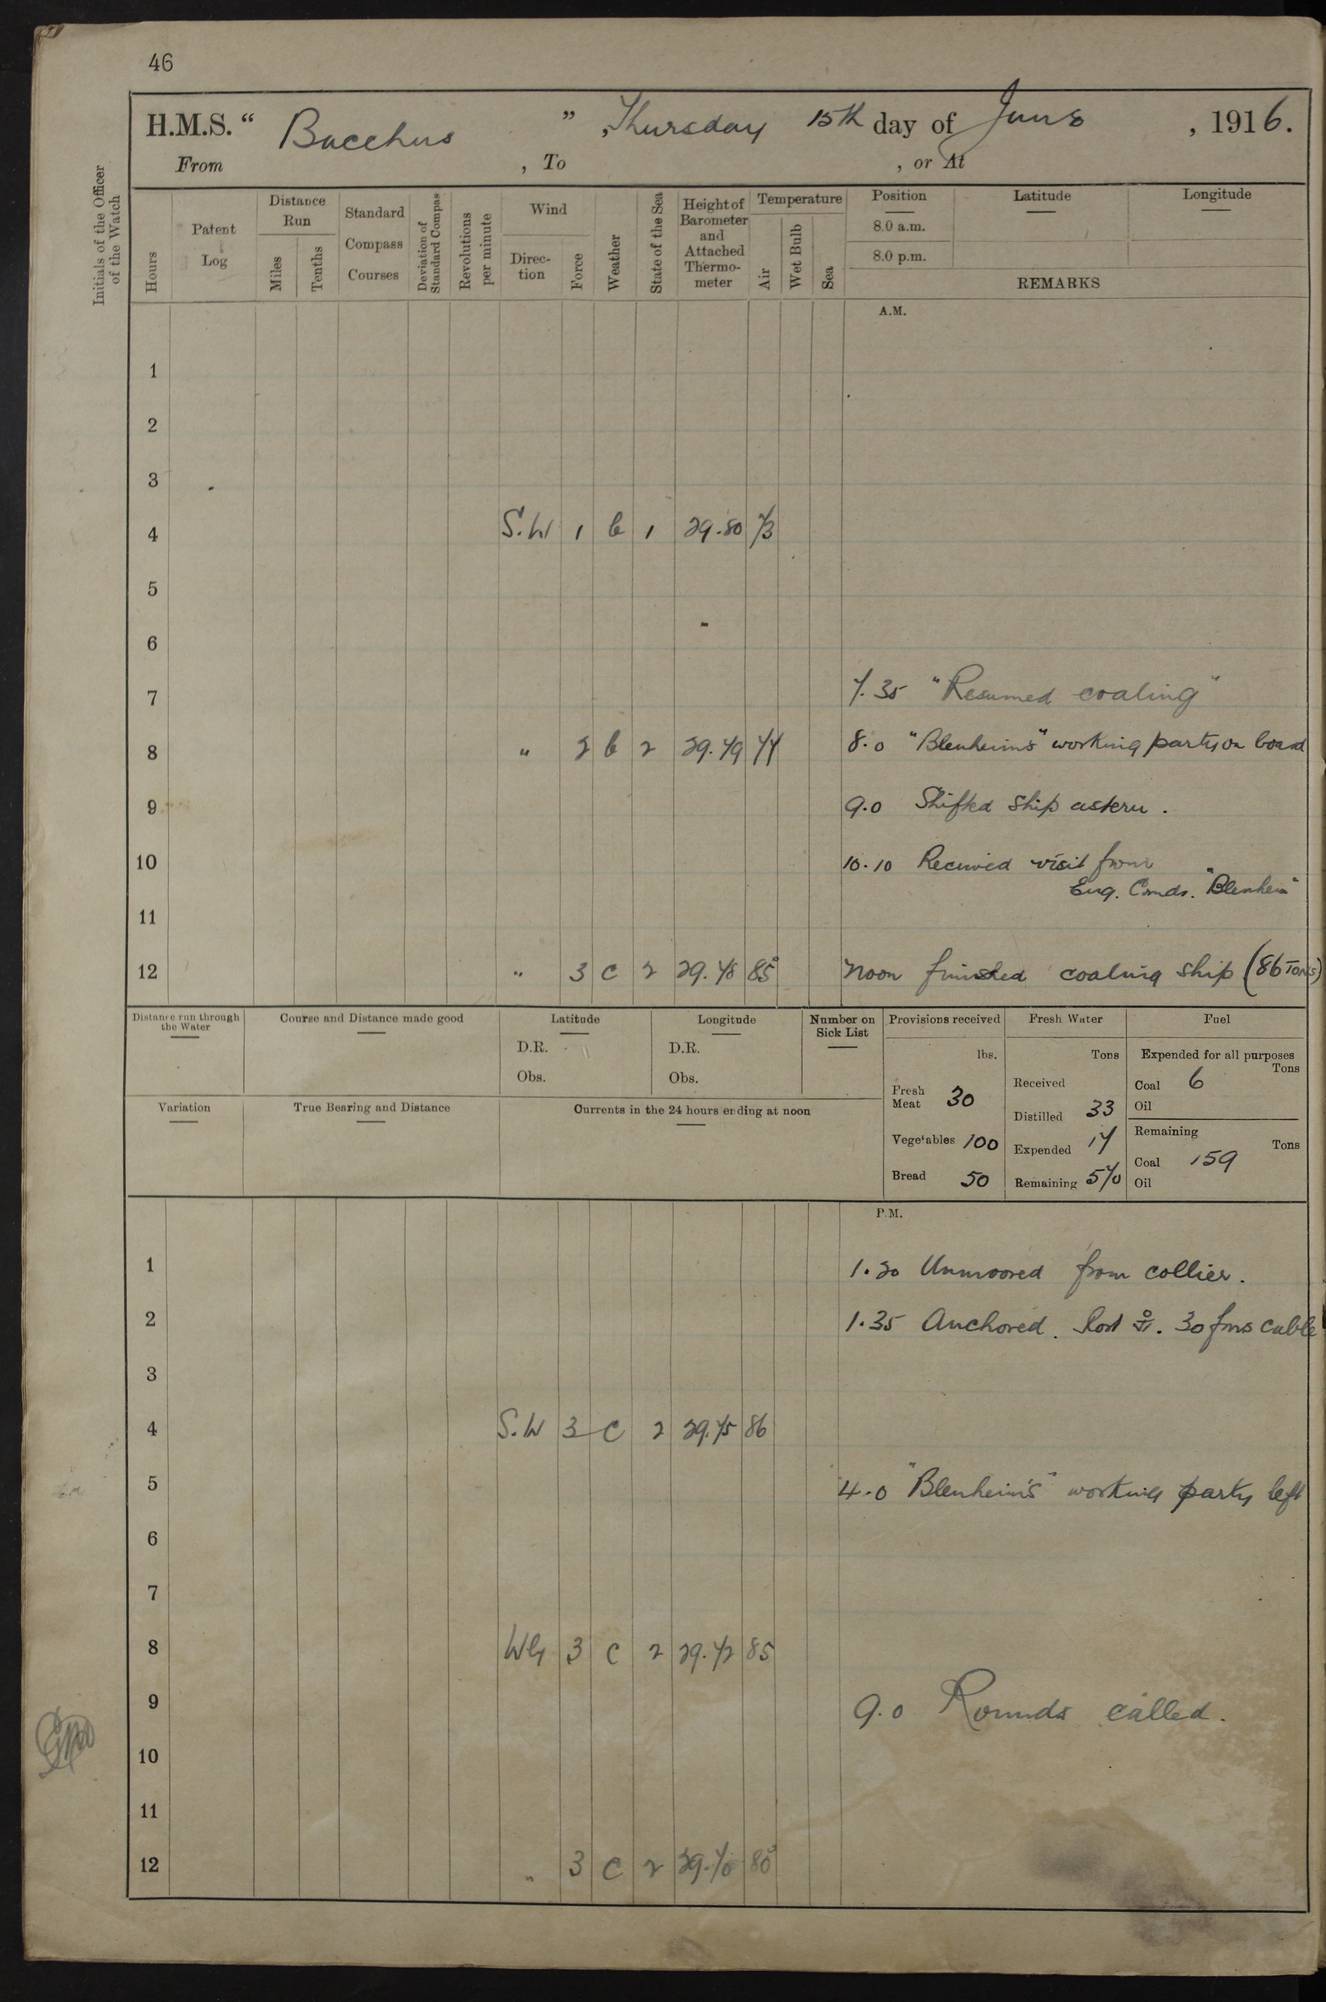 46
H.M.S. “ Bacchus ” , Thursday 15th day of June , 1916.
From , To , or At
Initials of the Officer of the Watch
Hours
Patent Log
Distance Run
Miles
Tenths
Standard Compass Courses
Deviation of Standard Compass
Revolutions per minute
Wind
Direction
Force
Weather
State of the Sea
Height of Barometer and Attached Thermometer
Temperature
Air
Wet Bulb
Sea
Position Latitude Longitude
8.0 a.m.
8.0 p.m.
REMARKS
A.M.
1
2
3
4 S.W 1 b 1 29.80 73
5
6
7 7.35 "Resumed coaling"
8 " 2 b 2 29.79 77 8.0 "Blenheims" working party on board
9 9.0 Shifted ship astern.
10 10.10 Received visit from
Eng. Comdr. "Blenheim"
11
12 " 3 c 2 29.78 85 Noon finished coaling ship (86 Tons)
Distance run through the Water
Course and Distance made good
Latitude
D.R.
Obs.
Longitude
D.R.
Obs.
Number on Sick List
Provisions received
lbs.
Fresh Meat 30
Vegetables 100
Bread 50
Fresh Water
Tons
Received
Distilled 33
Expended 17
Remaining 570
Fuel
Expended for all purposes
Tons
Coal 6
Oil
Remaining
Tons
Coal 159
Oil
Variation
True Bearing and Distance
Currents in the 24 hours ending at noon
P.M.
1 1.30 Unmoored from collier.
2 1.35 Anchored. Port . 30 fms cable
3
4 S.W 3 c 2 29.75 86
5 4.0 "Blenheim's" working party left
6
7
8 3 c 2 29.72 85
9 9.0 Rounds called.
10
11
12 " 3 c 2 29.70 80